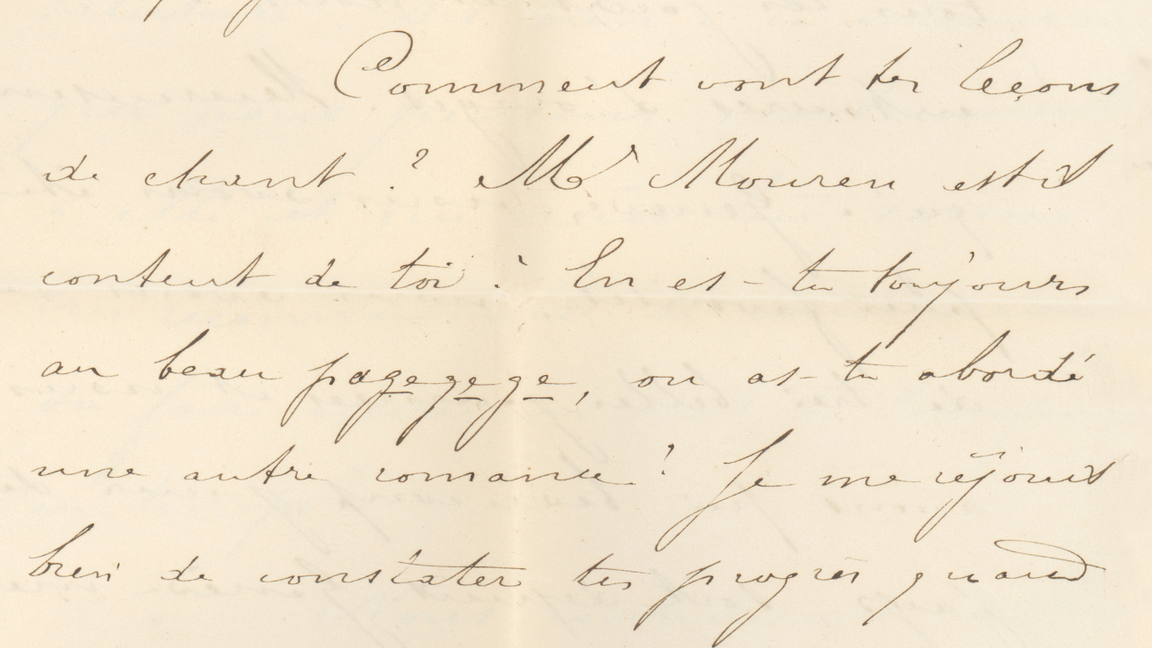 Comment vont tes leçons
de chant ? Mr Mouren est il
content de toi ? En es-tu toujours
au beau pagegegege, ou as-tu abordé
une autre romance ? Je me réjouis
bien de constater tes progrès quand